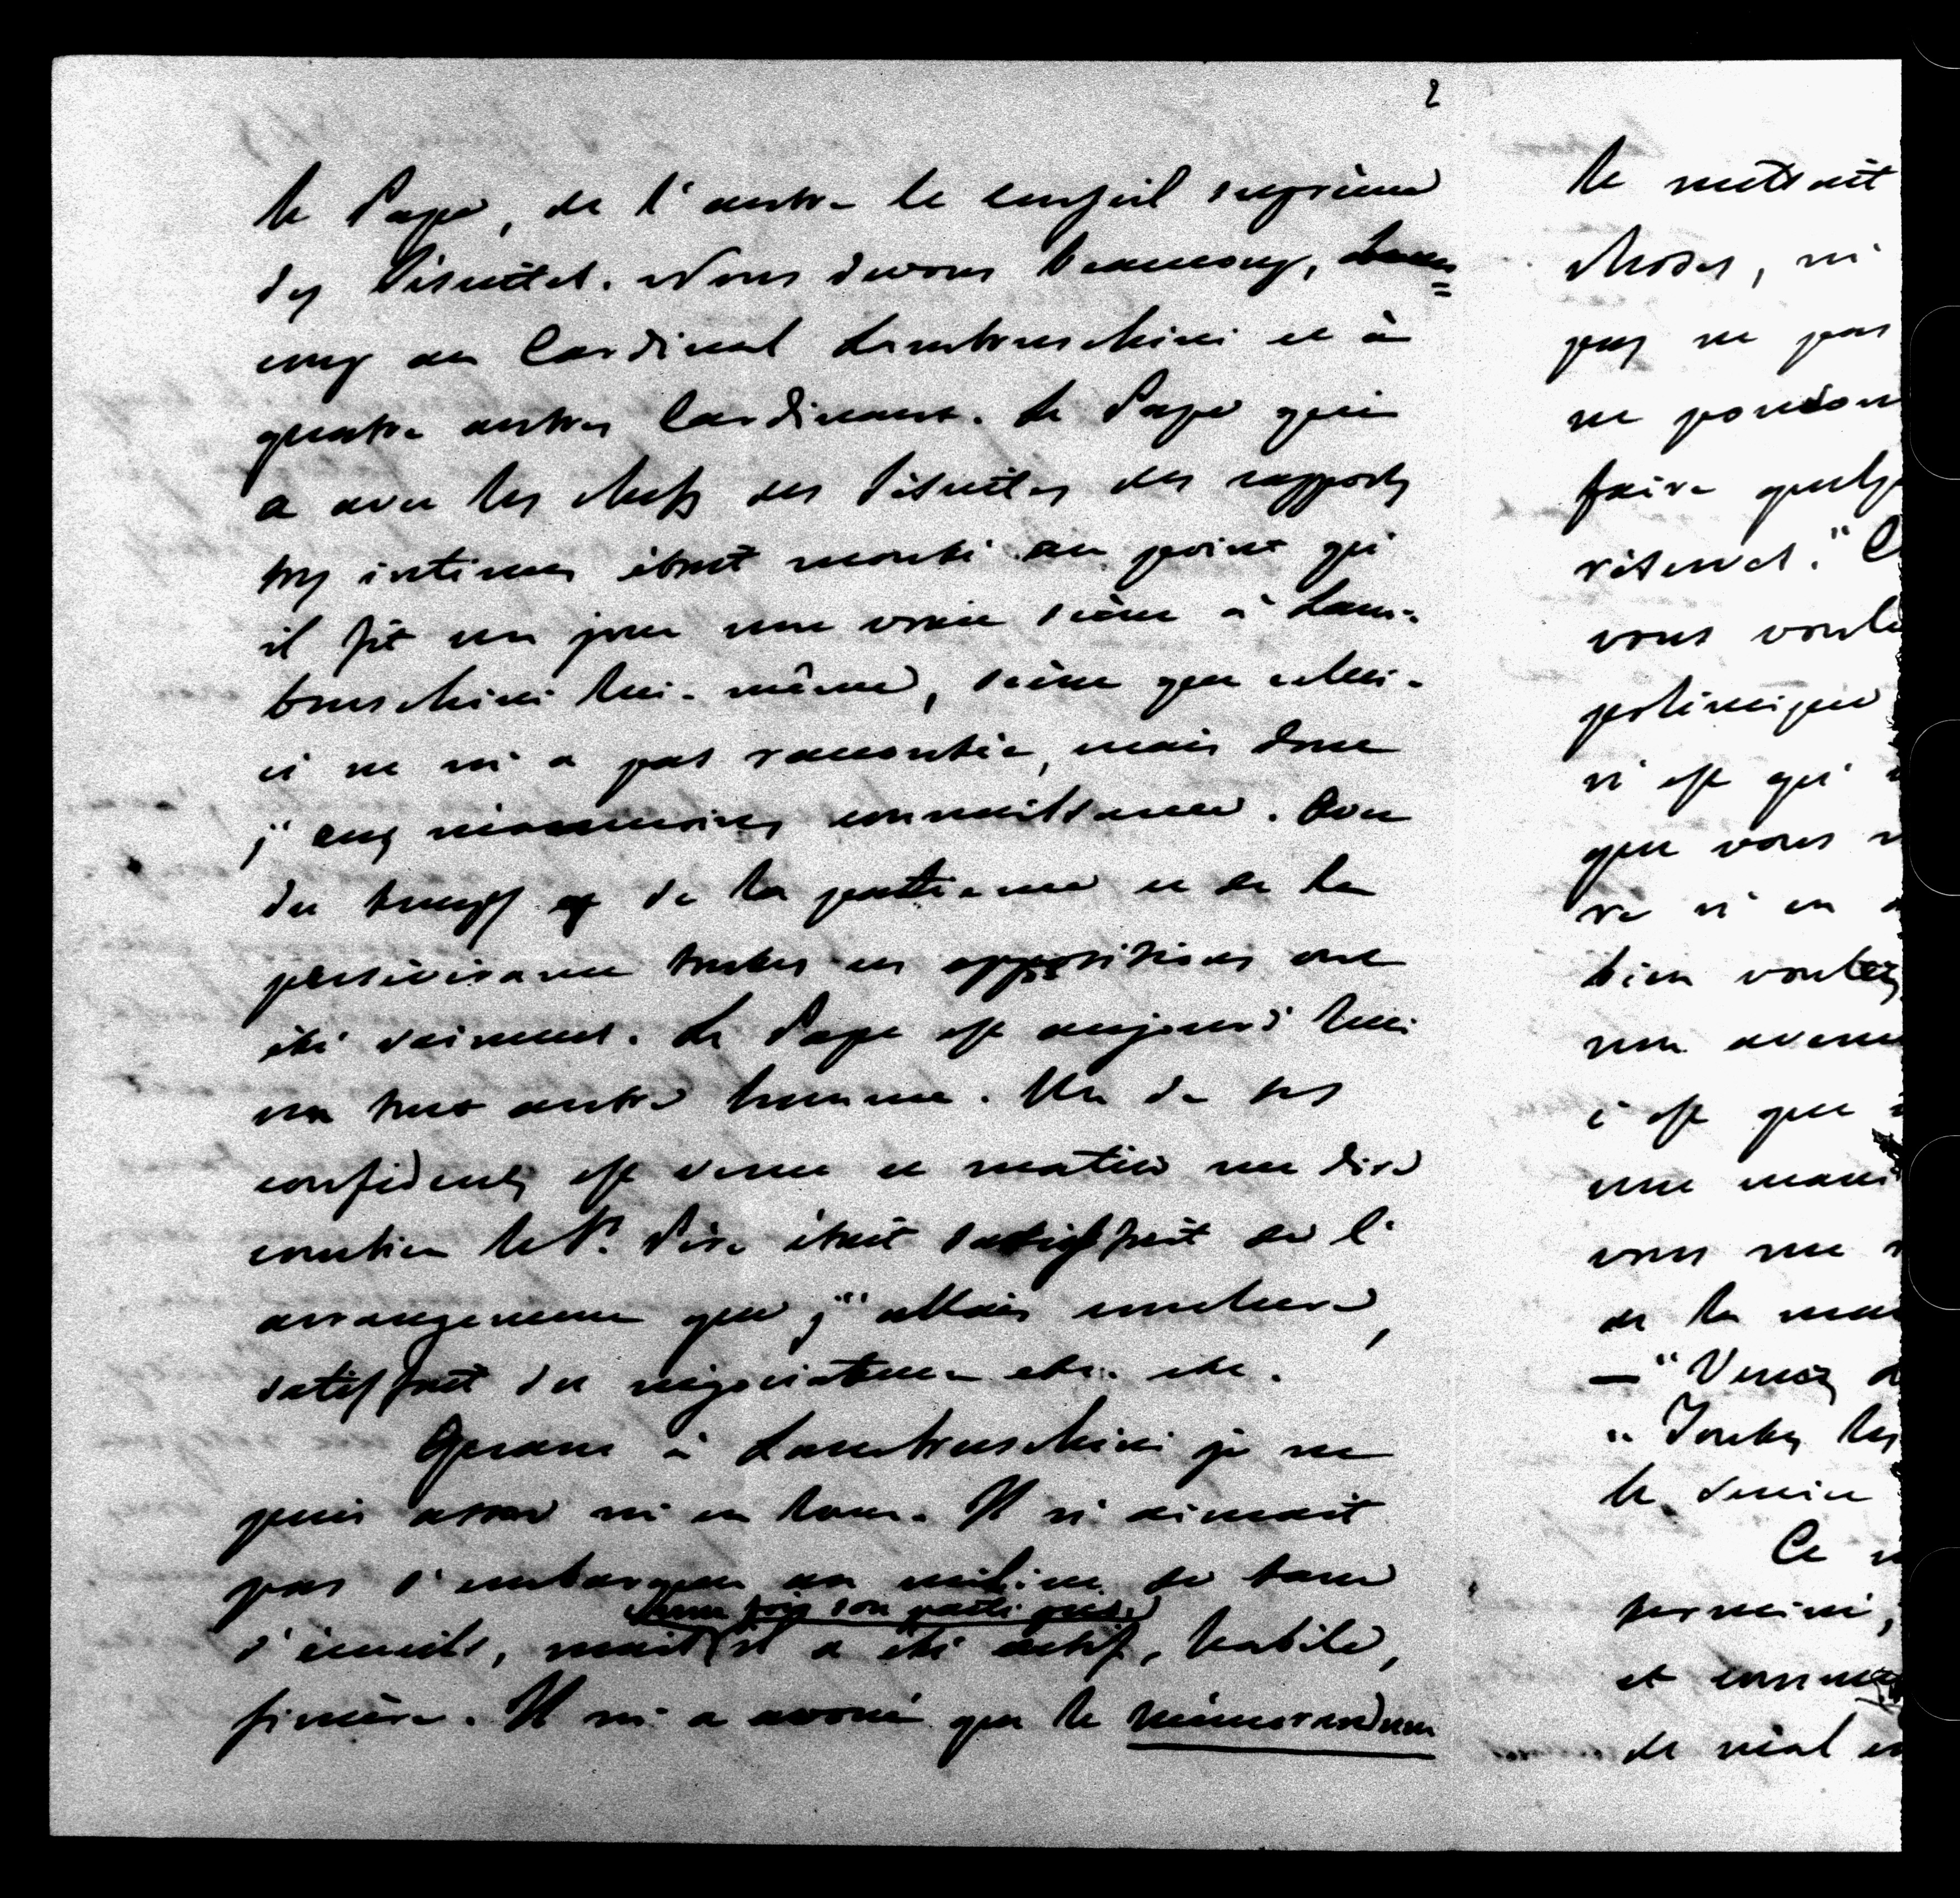 2
le Pape, de l'autre le conseil suprême
des Jésuites. Nous devons beaucoup, beau=
coup au Cardinal Lambruschini et à
quatre autres Cardinaux. Le Pape qui
a avec les chefs des Jésuites des rapports
très intimes était monté au point qu'
il fit un jour une vraie scène à Lam-
bruschini lui-même, scène que celui-
ci ne m'a pas racontée, mais dont
j'eus néanmoins connaissance. Avec
du temps et de la patience et de la
persévérance toutes ces oppositions ont
été vaincues. Le Pape est aujourd'hui
un tout autre homme. Un de ses
confidents est venu ce matin me dire
combien le St. Père était satisfait de l'
arrangement que j'allais conclure,
satisfait du négociateur etc. etc.
Quant à Lambruschini je ne
puis assez m'en louer. Il n'aimait
pas s'embarquer au milieu de tant
d'écueils, mais une fois son parti pris, il a été actif, habile,
sincère. Il m'a avoué que le mémorandum
le mettait
choses, ni
pas ne pas
ne pouvons
faire
réserves." C
vous
polémique
n'est qu'
que vous
re n'en
bien voulez
non
c'est que
une
vous me
de la
— "Venez
" Toutes les
le
Ce
et
de